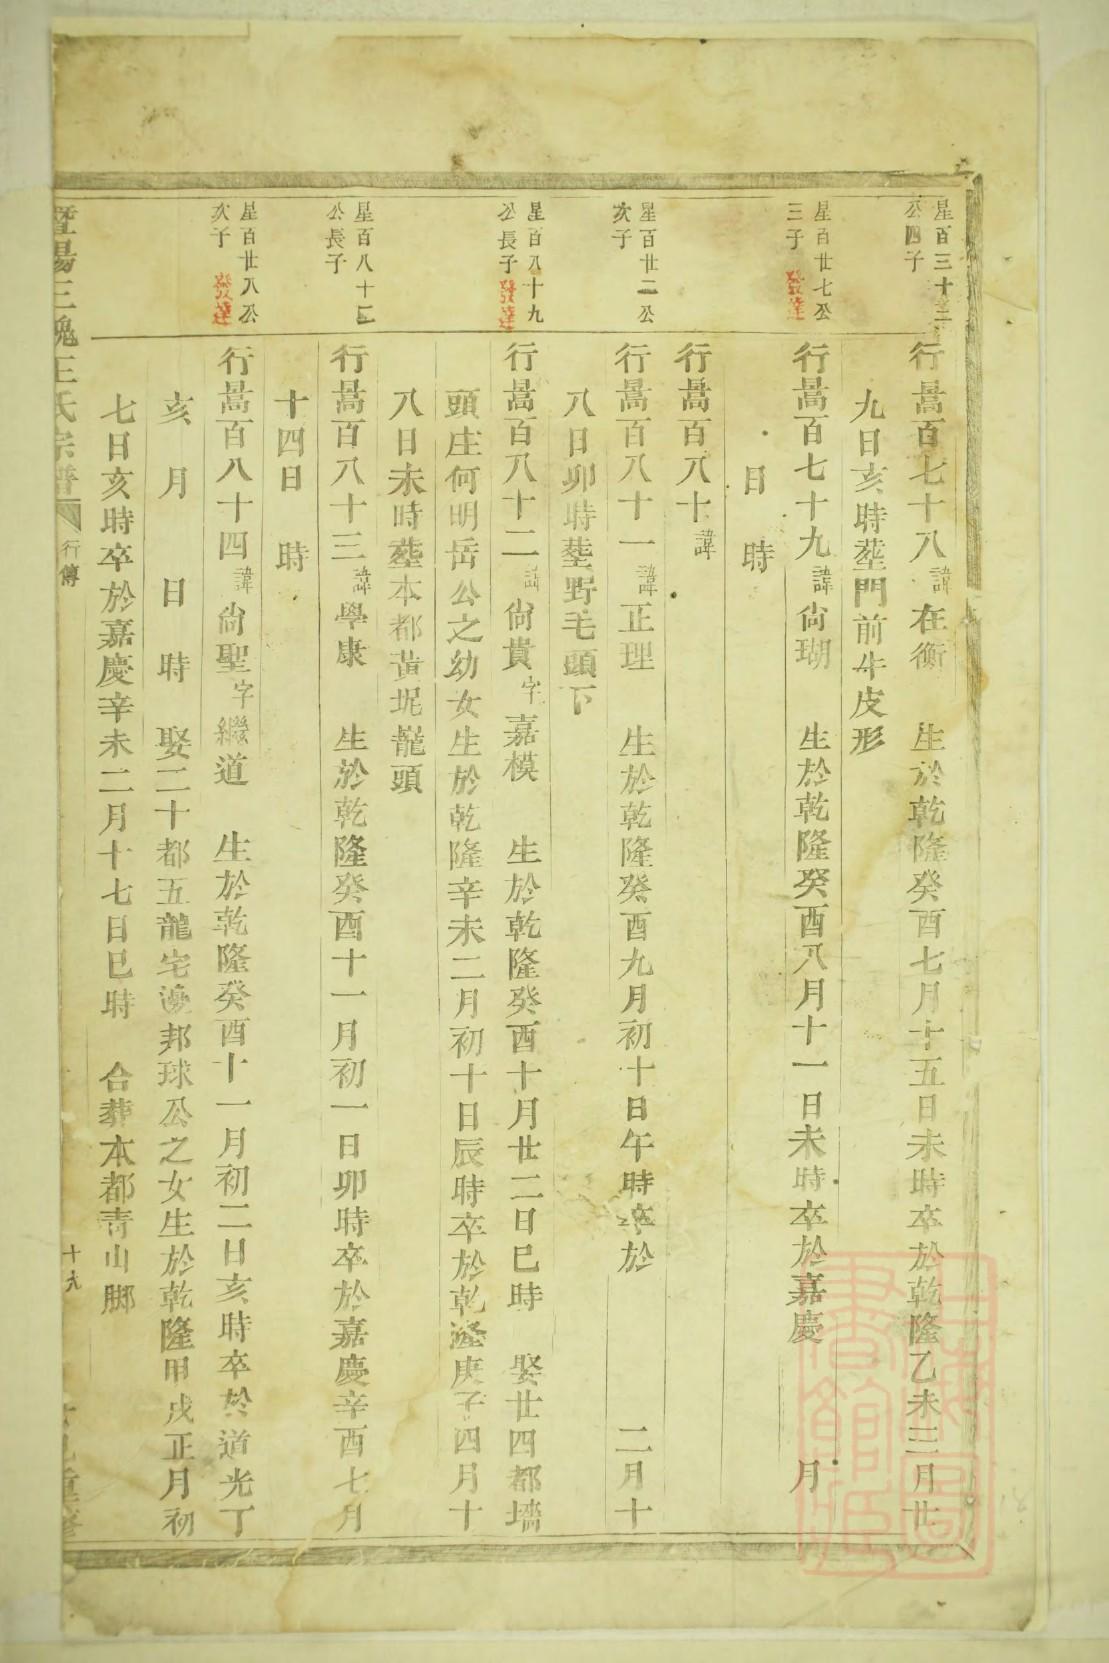 星百三十二
公四子
行暠百七十八諱在衡 生於乾隆癸酉七月十五日未時卒於乾隆乙未三月廿
九日亥時塟門前牛皮形
星百廿七公
三子 發達
行暠百七十九諱尙瑚 生於乾隆癸酉八月十一日未時卒於嘉慶 月
日 時
行暠百八十諱
星百廿二公
次子
行暠百八十一諱正理 生於乾隆癸酉九月初十日午時卒於 二月十
八日卯時塟野毛頭下
星百八十九
公長子 發達
行暠百八十二諱尙貴字嘉模 生於乾隆癸酉十月廿二日巳時 娶廿四都墻
頭庄何明岳公之幼女生於乾隆辛未二月初十日辰時卒於乾隆庚子四月十
八日未時塟本都黃坭龍頭
星百八十三
公長子
行暠百八十三諱學康 生於乾隆癸酉十一月初一日卯時卒於嘉慶辛酉七月
十四日 時
星百廿八公
次子 發達
行暠百八十四諱尙聖字繼道 生於乾隆癸酉十一月初二日亥時卒於道光丁
亥 月 日 時 娶二十都五龍宅邊邦球公之女生於乾隆甲戌正月初
七日亥時卒於嘉慶辛未二月十七日巳時 合葬本都靑山脚
暨陽三槐王氏宗譜 行傳 十九 重修